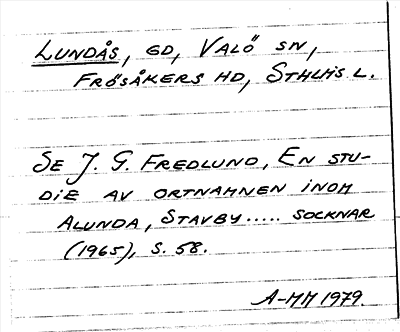 LUNDÅS, GD, VALÖ SN,
FRÖSÅKERS HD, STHLMS L.
SE J. G. FREDLUND, EN STU-
DIE AV ORTNAMNEN INOM
ALUNDA, STAVBY..... SOCKNAR
(1965), S. 58.
A-MM 1979.